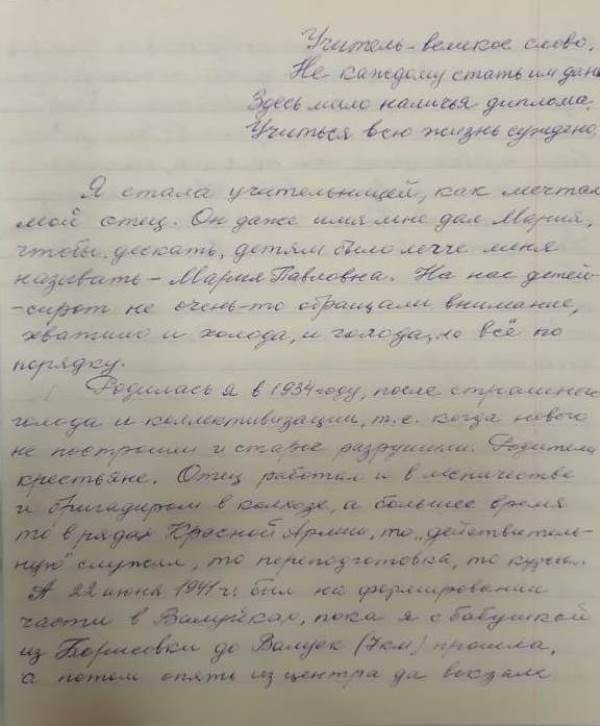 Учитель - великое слово.
Не каждому стать им дано
Здесь мало наличья диплома,
Учиться всю жизнь суждено.
Я стала учительницей, как мечтал
мой отец. Он даже имя мне дал Мария,
чтобы, дескать, детям было легче меня
называть - Мария Павловна. На нас детей-
-сирот не очень-то обращали внимание,
хватило и холода, и голода, но всё по
порядку.
Родилась я в 1934 году, после страшного
голода и коллективизации, т.е. когда нового
не построили и старое разрушили. Родители
крестьяне. Отец работал и в лесничестве
и бригадиром в колхозе, а большее время
то в рядах Красной Армии, то „действитель-
ную" служил, то переподготовка, то курсы.
А 22 июня 1941 г. был на формировании
части в Валуйках, пока я с бабушкой
из Борисовки до Валуек (7км) прошла,
а потом опять из центра да вокзала